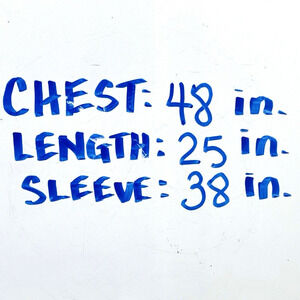 CHEST: 48 in.
LENGTH: 25 in.
SLEEVE: 38 in.